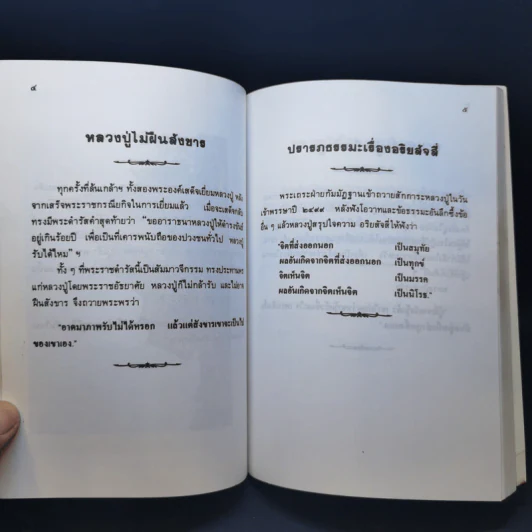 ๔
หลวงปู่ไม่ฝืนสังขาร
ทุกครั้งที่ล้นเกล้าฯ ทั้งสองพระองค์เสด็จเยี่ยมหลวงปู่ หลัง
จากเสร็จพระราชกรณียกิจในการเยี่ยมแล้ว เมื่อจะเสด็จกลับ
ทรงมีพระดำรัสคำสุดท้ายว่า "ขออาราธนาหลวงปู่ให้ดำรงขันธ์
อยู่เกินร้อยปี เพื่อเป็นที่เคารพนับถือของปวงชนทั่วไป หลวงปู่
รับได้ไหม" ฯ
ทั้ง ๆ ที่พระราชดำรัสนี้เป็นสัมมาวจีกรรม ทรงประทานพร
แก่หลวงปู่โดยพระราชอัธยาศัย หลวงปู่ก็ไม่กล้ารับ และไม่อาจ
ฝืนสังขาร จึงถวายพระพรว่า
"อาตมาภาพรับไม่ได้หรอก แล้วแต่สังขารเขาจะเป็นไป
ของเขาเอง."
๕
ปรารภธรรมะเรื่องอริยสัจสี่
พระเถระฝ่ายกัมมัฏฐานเข้าถวายสักการะหลวงปู่ในวัน
เข้าพรรษาปี ๒๔๙๙ หลังฟังโอวาทและข้อธรรมะอันลึกซึ้งข้อ
อื่น ๆ แล้วหลวงปู่สรุปใจความ อริยสัจสี่ให้ฟังว่า
"จิตที่ส่งออกนอก เป็นสมุทัย
ผลอันเกิดจากจิตที่ส่งออกนอก เป็นทุกข์
จิตเห็นจิต เป็นมรรค
ผลอันเกิดจากจิตเห็นจิต เป็นนิโรธ."